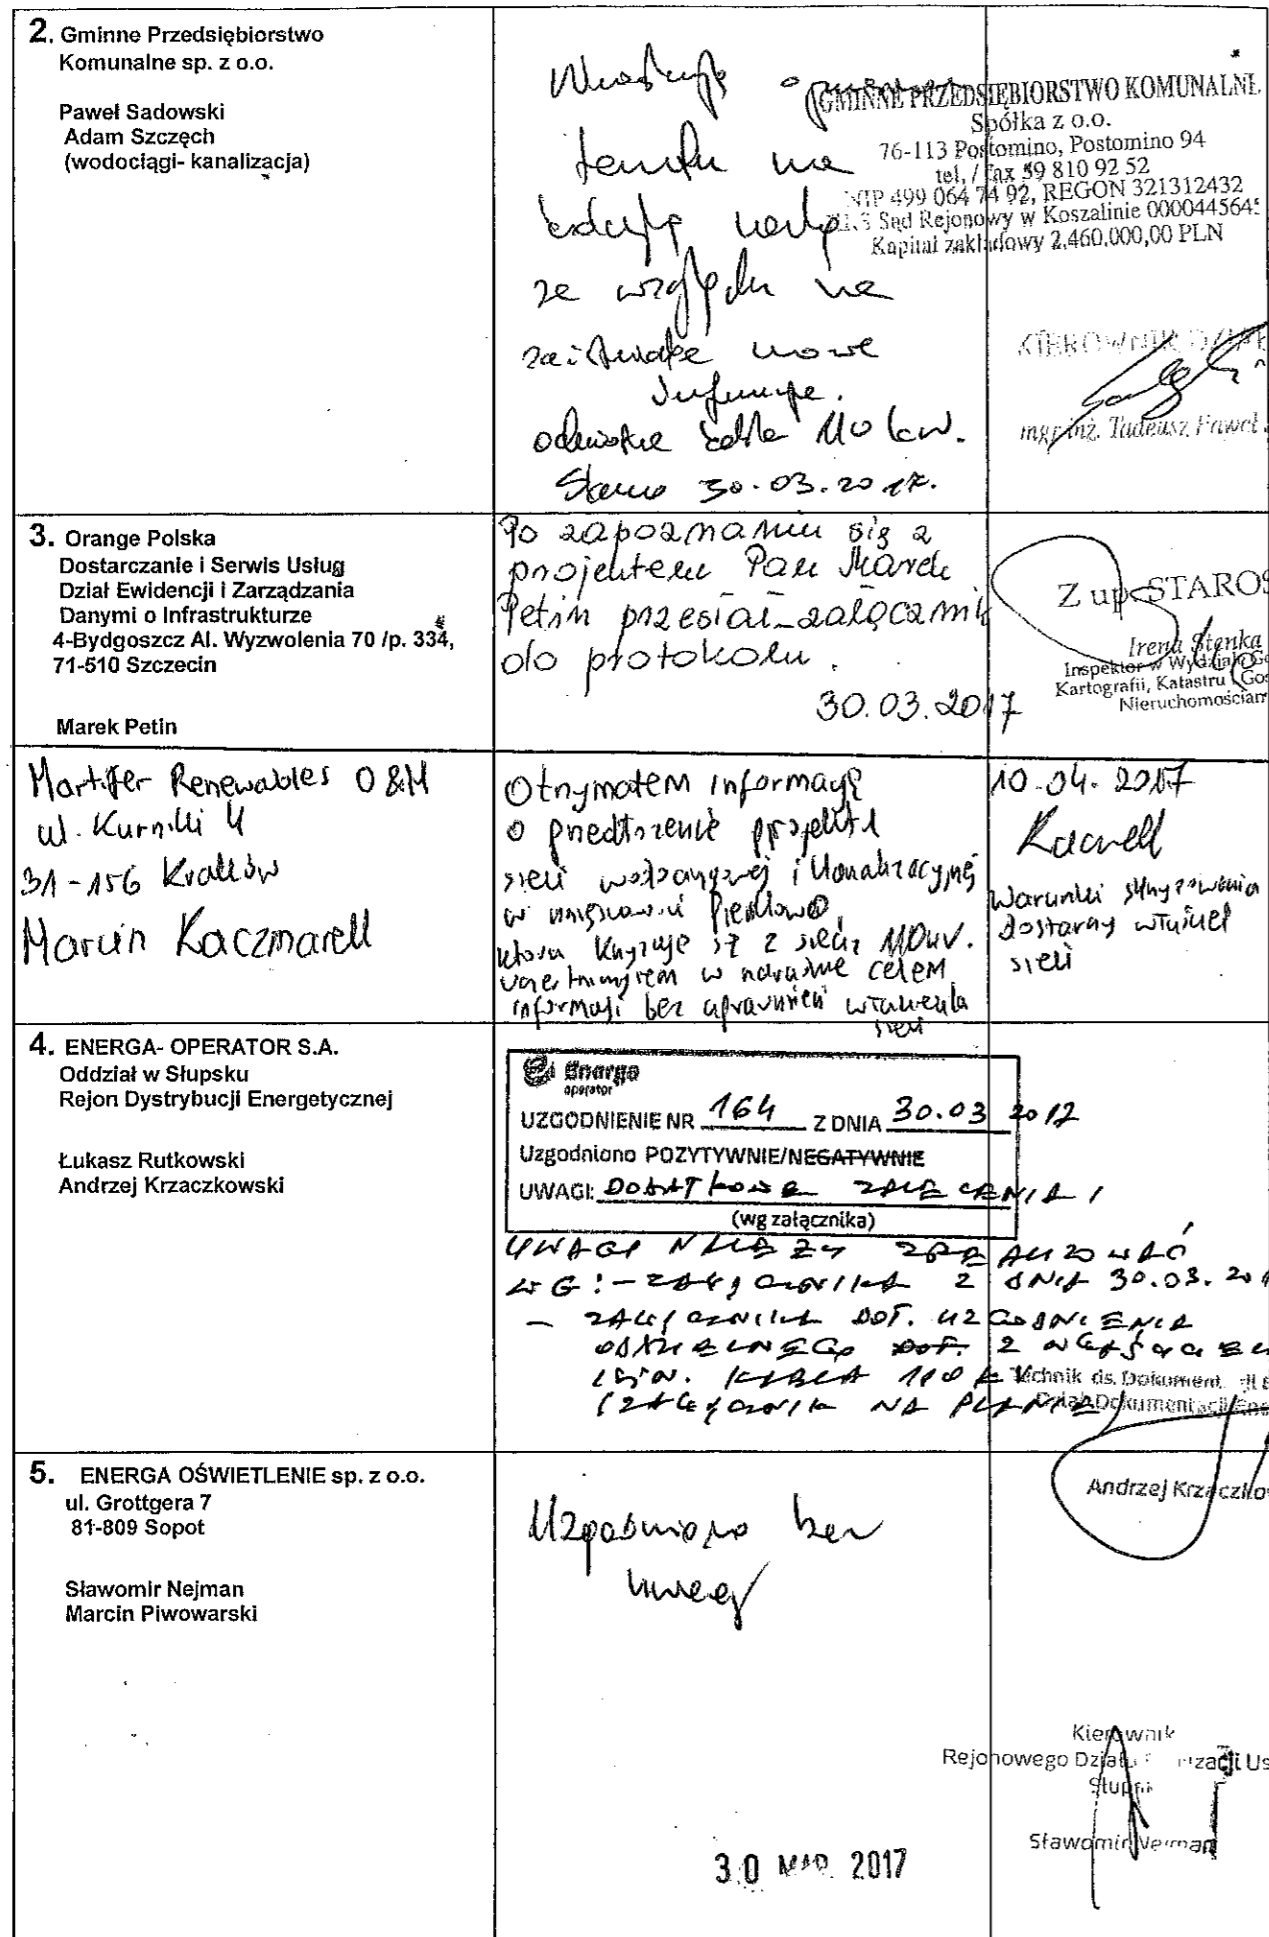 2. Gminne Przedsiębiorstwo
Komunalne sp. z o.o.
Paweł Sadowski
Adam Szczęch
(wodociągi- kanalizacja)
na
ze względu na
nowe
30.03.2017.
GMINNE PRZEDSIĘBIORSTWO KOMUNALNE
Spółka z o.o.
76-113 Postomino, Postomino 94
tel, / fax 59 810 92 52
NIP 499 064 74 92, REGON 321312432
Sąd Rejonowy w Koszalinie
Kapitał zakładowy 2,460,000,00 PLN
KIEROWNIK
mgr inż. Tadeusz Paweł
3. Orange Polska
Dostarczanie i Serwis Usług
Dział Ewidencji i Zarządzania
Danymi o Infrastrukturze
4-Bydgoszcz Al. Wyzwolenia 70 /p. 334,
71-510 Szczecin
Marek Petin
Po zapoznaniu się z
projektem Pan Marek
Petin przesłał załącznik
do protokołu.
30.03.2017
Z up. STAROS
Irena Stenka
Inspektor w Wydziale Ge
Kartografii, Katastru i Gos
Nieruchomościam
Martifer Renewables O&M
ul. Kurniki 4
31-156 Kraków
Marcin Kaczmarek
Otrzymałem informację
o przedłożeniu projektu
sieci wodociągowej i kanalizacyjnej
w miejscowości
która krzyżuje się z siecią 110kV.
w naradzie celem
informacji bez uprawnień właściciela
sieci
10.04.2017
Warunki skrzyżowania
dostarczy właściciel
sieci
4. ENERGA- OPERATOR S.A.
Oddział w Słupsku
Rejon Dystrybucji Energetycznej
Łukasz Rutkowski
Andrzej Krzaczkowski
Energa
operator
UZGODNIENIE NR 164 Z DNIA 30.03 2017
Uzgodniono POZYTYWNIE/NEGATYWNIE
UWAGI: DODATKOWE ZALECENIA I
(wg załącznika)
UWAGI NALEŻY ZREALIZOWAĆ
WG: - ZAŁĄCZNIKA Z DNIA 30.03.201
- ZAŁĄCZNIKA DOT. UZGODNIENIA
KABLA 110 k
(ZAŁĄCZNIK NA PLANIE)
Technik ds. Dokumentacji
Dział Dokumentacji
Andrzej Krzaczko
5. ENERGA OŚWIETLENIE sp. z o.o.
ul. Grottgera 7
81-809 Sopot
Sławomir Nejman
Marcin Piwowarski
Uzgodniono bez
uwag
Kierownik
Rejonowego Działu
Słupsk
Sławomir Nejman
30 MAR. 2017